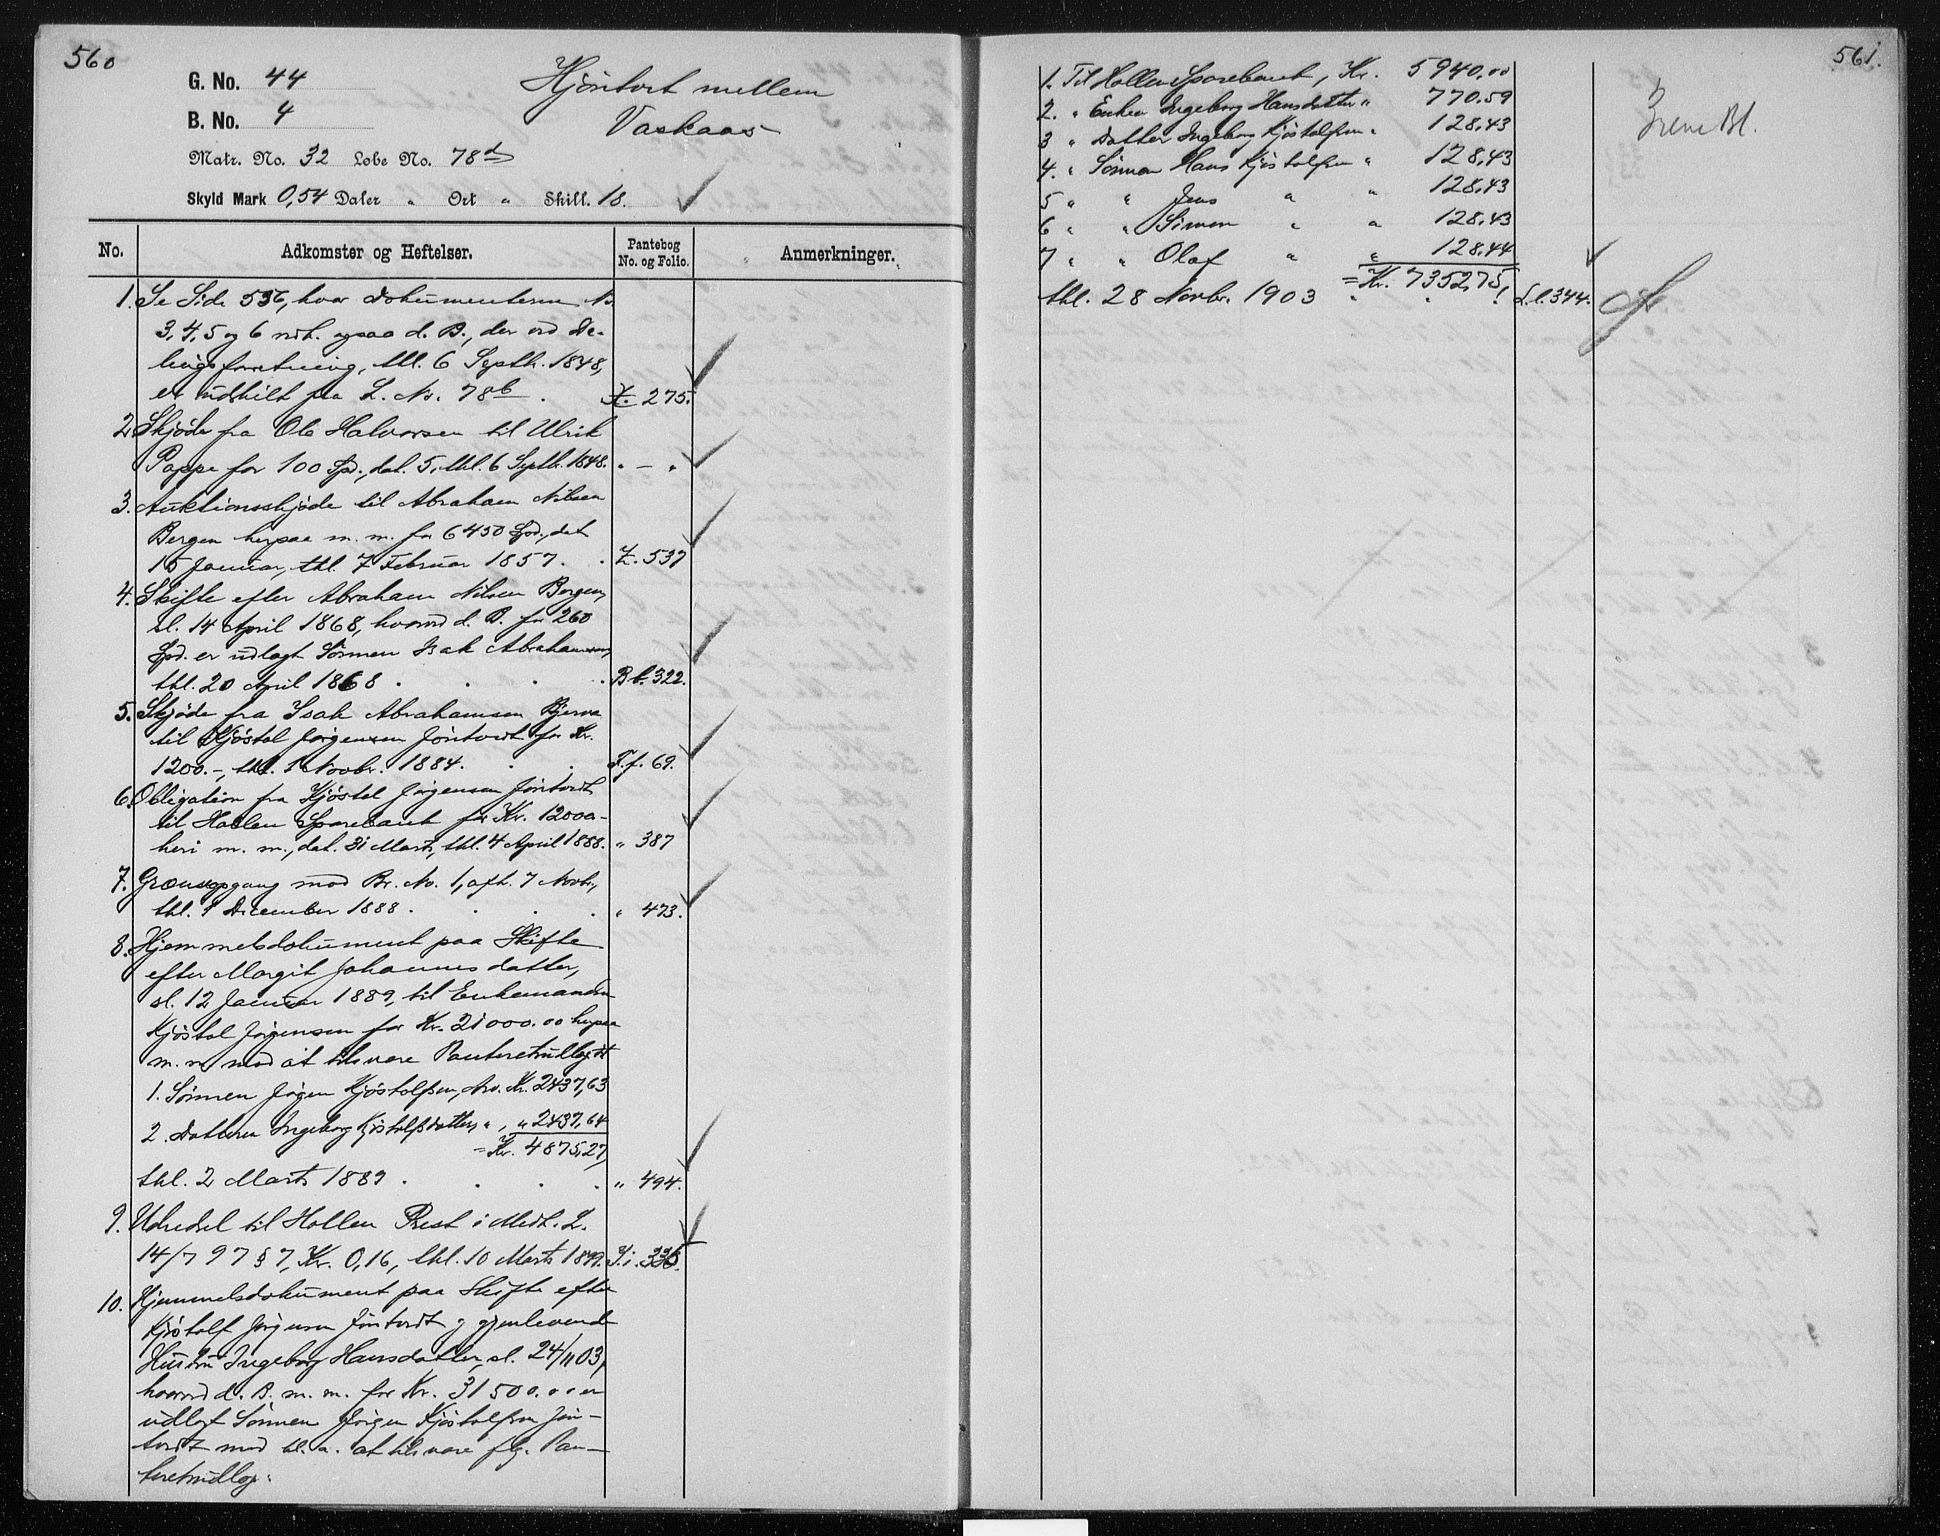 560
G. No. 44
B. No. 4
Hjöntvet mellem
Vaskaas
Matr. No. 32 Løbe No. 78d
Skyld Mark 0,54 Daler " Ort " Skill. 18.
No. Adkomster og Heftelser. Pantebog No. og Folio. Anmerkninger.
1. Se Side 536, hvor Dokumenterne No
3, 4, 5 og 6 vdk. ogsaa d. B., der ved De-
lingsforretning, thl. 6 Septb. 1848,
er udskilt fra L. No. 78b . 275.
2. Skjöde fra Ole Halvorsen til Ulrik
Pappe for 100 Spd., dat. 5, thl. 6 Septb. 1848. " — "
3. Auktionsskjöde til Abraham Nilsen
Bergen herpaa m. m. for 6450 Spd., dat
15 Januar, thl. 7 Februar 1857. . Z. 537
4. Skifte efter Abraham Nilsen Borgen,
sl. 14 April 1868, hvorved d. B. for 260
Spd. er udlagt Sönnen Isak Abrahamsen,
thl. 20 April 1868 . . . . B b. 322.
5. Skjöde fra Isak Abrahamsen Bjerva
til Kjöstol Jörgensen Jöntvedt for Kr.
1200.-, thl. 1 Novbr. 1884. . . F. f. 69.
6. Obligation fra Kjöstol Jörgensen Jöntvedt
til Hollen Sparebank for Kr. 12000-
heri m. m., dat. 31 Marts, thl. 4 April 1888. " 387
7. Grænseopgang mod Br. No. 1, afh. 7 Novbr.,
thl. 1 December 1888 . . . . " 473.
8. Hjemmelsdokument paa Skifte
efter Margit Johannesdatter,
sl. 12 Januar 1889, til Enkemanden
Kjöstol Jörgensen for Kr. 21000.00 herpaa
m. m. mod at tilsvare Panteretsudlæg til
1. Sönnen Jörgen Kjöstolfsen, Arv. Kr. 2437,63
2. Datteren Ingeborg Kjöstolfsdatter, " , " 2437,64
= Kr. 4875,27,
thl. 2 Marts 1889 . . . . " 494.
9. Udredsel til Hollen Prest i Medh. L.
14/7 97 § 7, Kr. 0,16, thl. 10 Marts 1899. F. i. 336.
10. Hjemmelsdokument paa Skifte efter
Kjöstolf Jörgensen Jöntvedt og gjenlevende
Hustru Ingeborg Hansdatter, sl. 24/11 03,
hvorved d. B. m. m. for Kr. 31500.00 er
udlagt Sönnen Jörgen Kjöstolfsen Jön-
tvedt mod bl. a. at tilsvare flg. Pan-
teretsudlæg:
561.
1. Til Hollen Sparebank, Kr. 5940.00
2. " Enken Ingeborg Hansdatter " 770.59
3 " Datter Ingeborg Kjöstolfsen " 128.43
4. " Sönnen Hans Kjöstolfsen " 128,43
5 " " Jens " " 128.43
6 " " Simon " " 128.43
7 " " Olaf " " 128.44
= Kr. 7352,75,
thl. 28 Novbr. 1903 " " " L. l. 344.
Irene Bl.